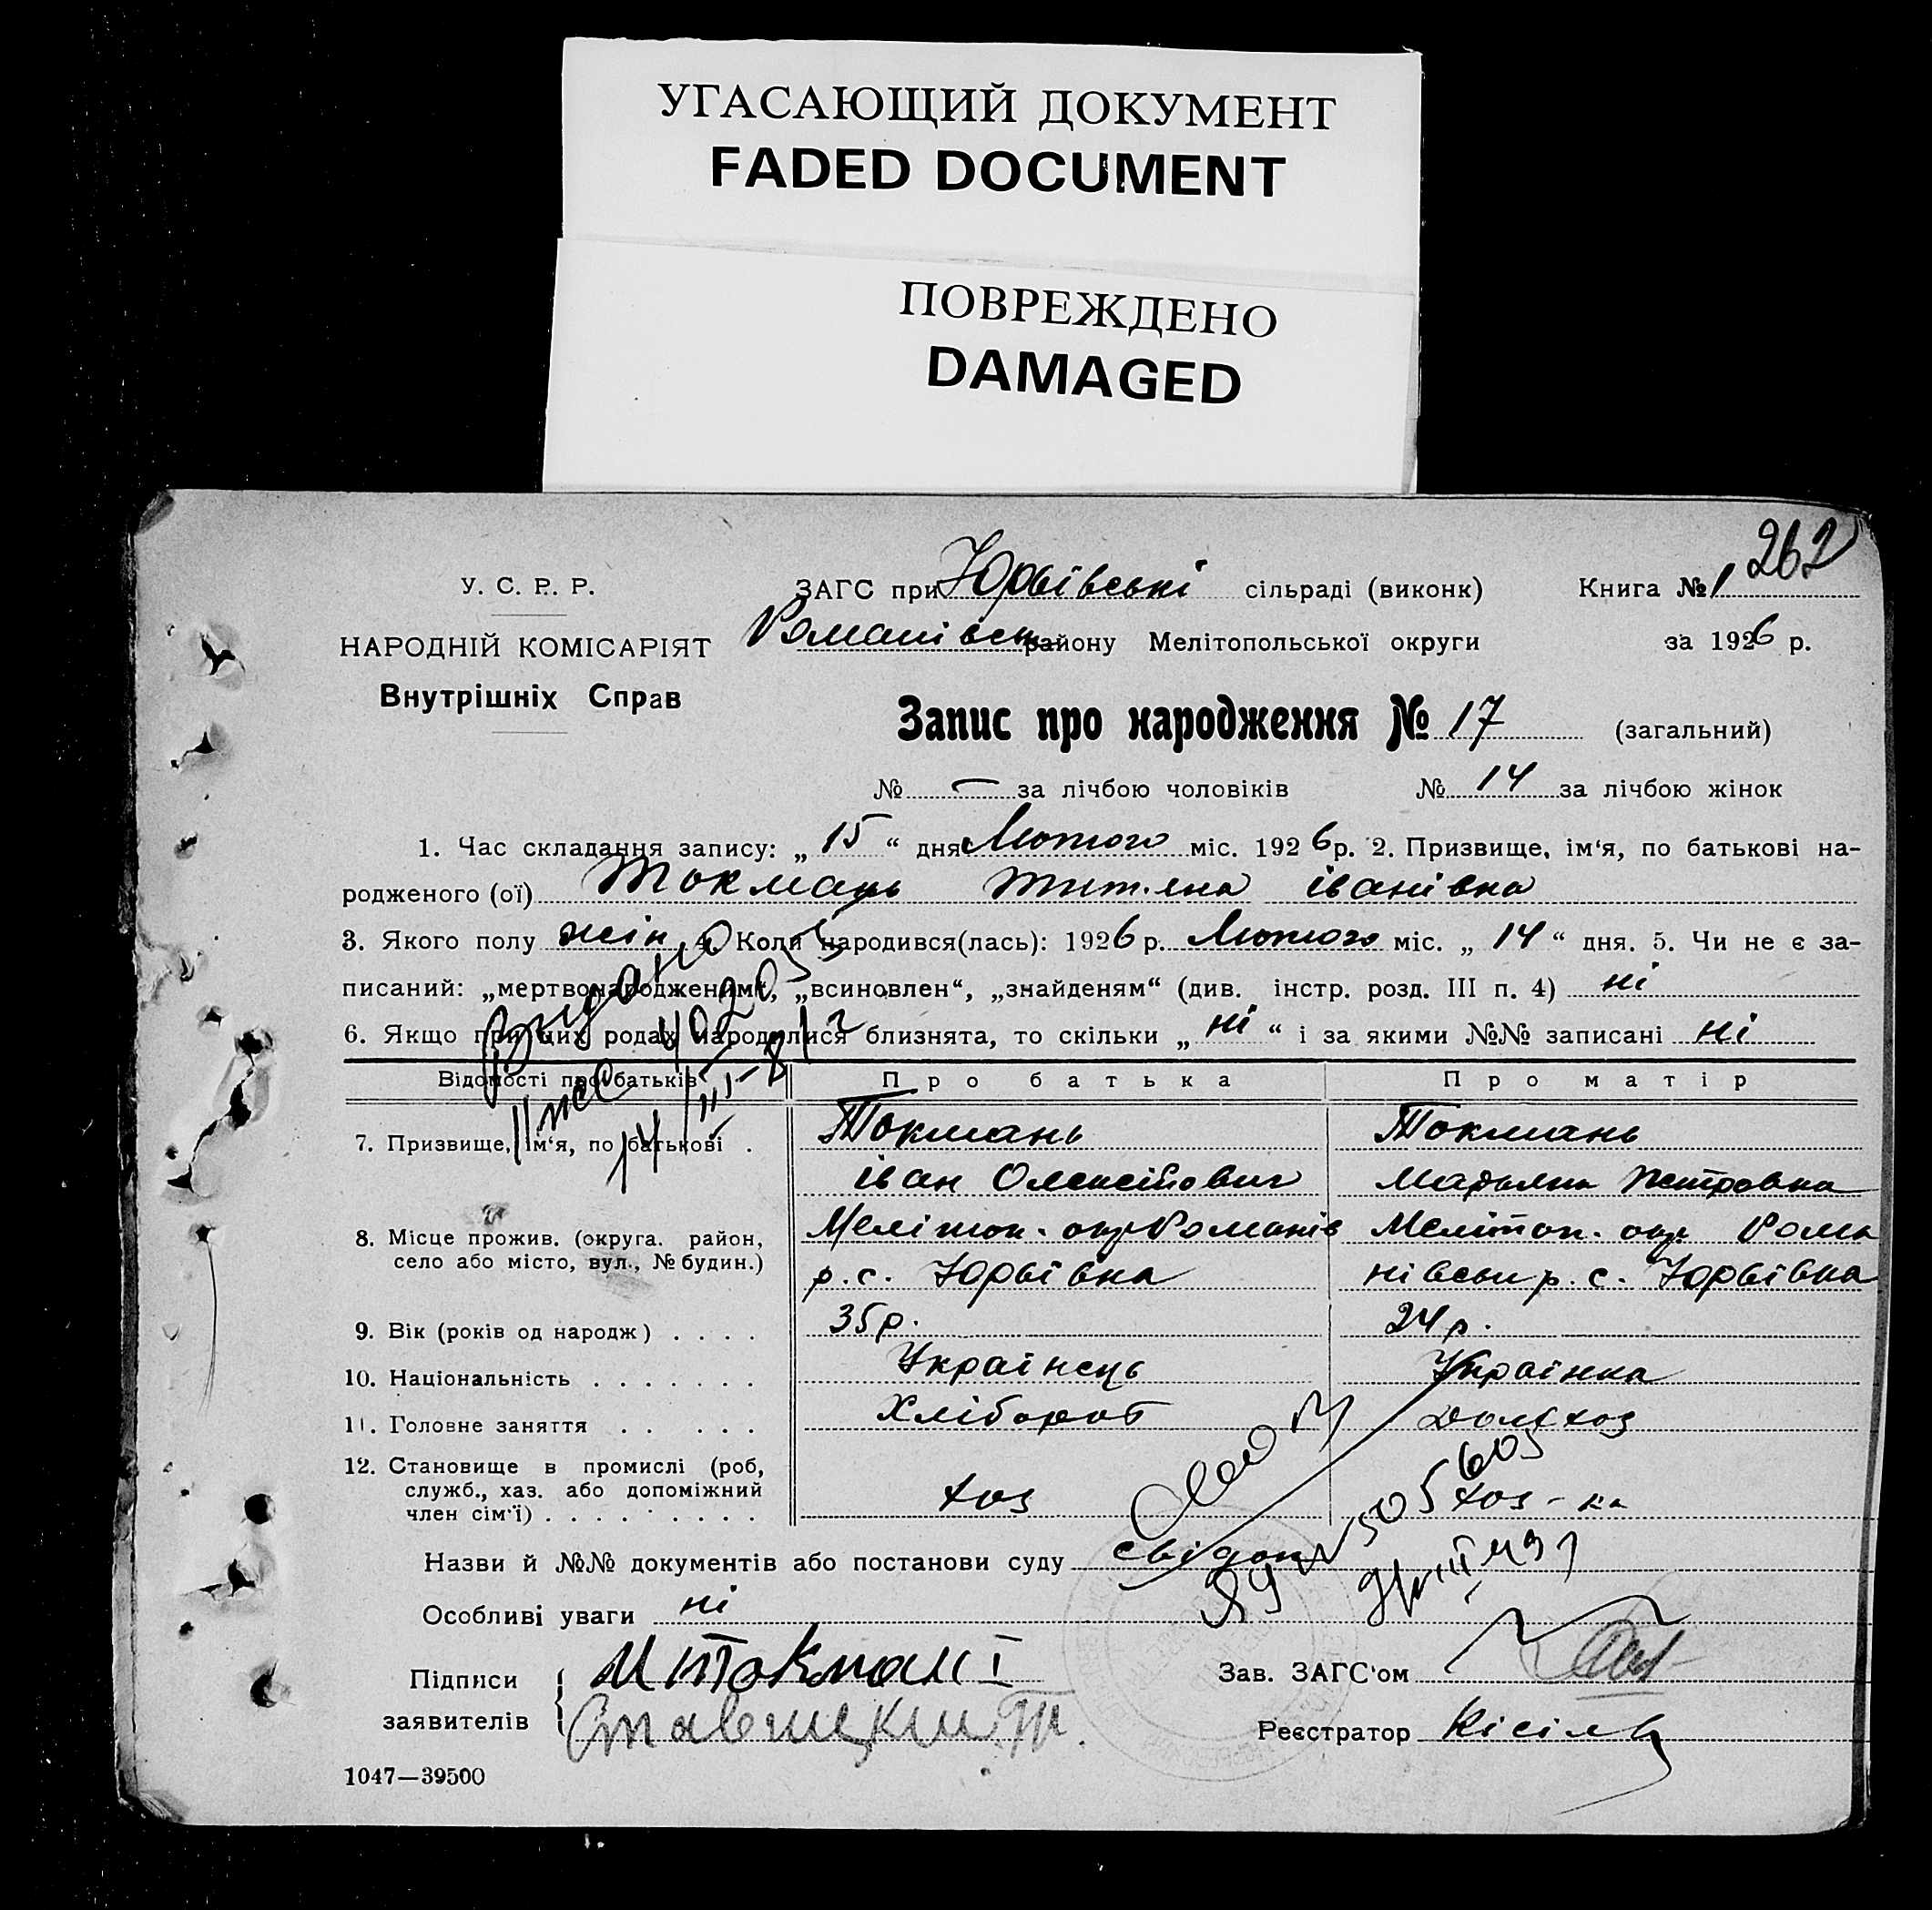 УГАСАЮЩИЙ ДОКУМЕНТ
FADED DOCUMENT
ПОВРЕЖДЕНО
DAMAGED
262
У. С. Р. Р. ЗАГС при Юрьівські сільраді (виконк) Книга № 1
НАРОДНІЙ КОМІСАРІЯТ Романівськ району Мелітопольської округи за 1926 р.
Внутрішніх Справ
Запис про народження № 17 (загальний)
№ — за лічбою чоловіків № 14 за лічбою жінок
1. Час складання запису: „ 15 “ дня Лютого міс. 1926 р. 2. Призвище, ім‘я, по батькові на-
родженого (ої) Токмань Тит.яна іванівна
3. Якого полу жін. 4. Коли народився(лась): 1926 р. Лютого міс. „ 14 “ дня. 5. Чи не є за-
писаний: „мертвонародженим“, „всиновлен“, „знайденям“ (див. інстр. розд. III п. 4) ні
6. Якщо при цих родах народилися близнята, то скільки „ ні “ і за якими №№ записані ні
Відомості про батьків Про батька Про матір
7. Призвище, ім‘я, по батькові . Токмань Токмань
іван Олексійович Марьяна Петровна
8. Місце прожив. (округа. район, Мелітоп. окр Романів Мелітоп. окр. Рома
село або місто, вул., № будин.) р. с. Юрьівка нівськ р. с. Юрьівка
9. Вік (років од народж) . . . . 35 р. 24 р.
10. Національність . . . . . . . Украінець Украінка
11. Головне заняття . . . . . Хлібороб
12. Становище в промислі (роб,
служб., хаз. або допоміжний хоз хоз-ка
член сім‘ї) . . . . . . . . .
Назви й №№ документів або постанови суду
Особливі уваги ні
Підписи Зав. ЗАГС‘ом
заявителів Ставицкий Реєстратор Кісіль
1047—39500